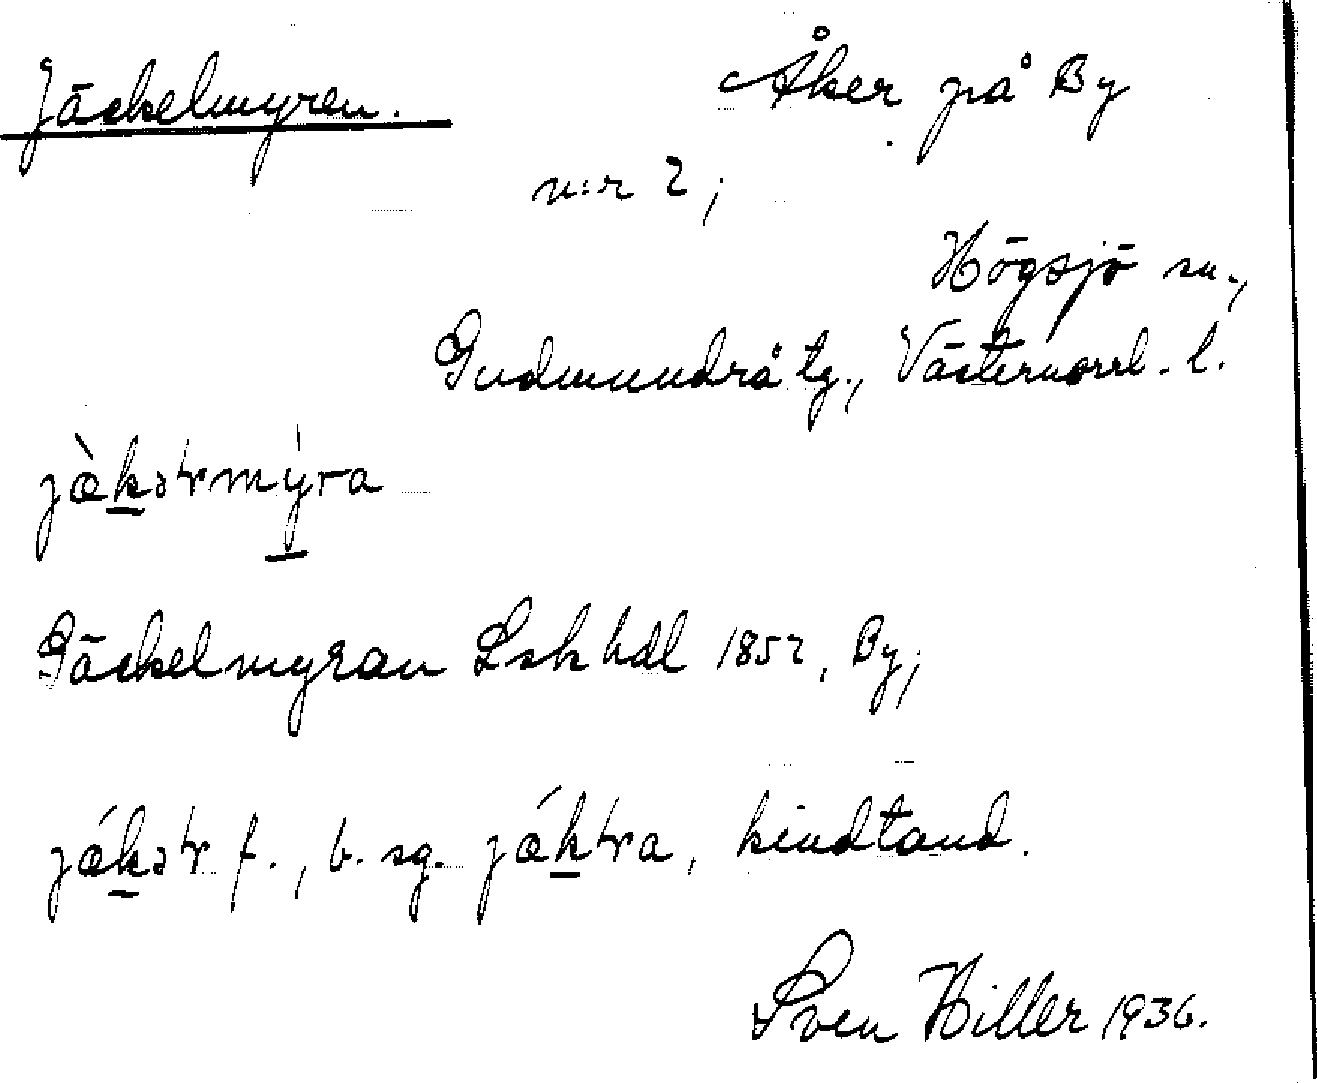 Jäckelmyren. Åker på By
n:r 2;
Högsjö sn.,
Gudmundrå tg., Västernorrl. l.
jæ̀kəɽmýra
Jäckelmyran Lsk hdl 1852, By;
jǽkəɽ f., b. sg. jǽkɽa, kindtand.
Sven Hiller 1936.